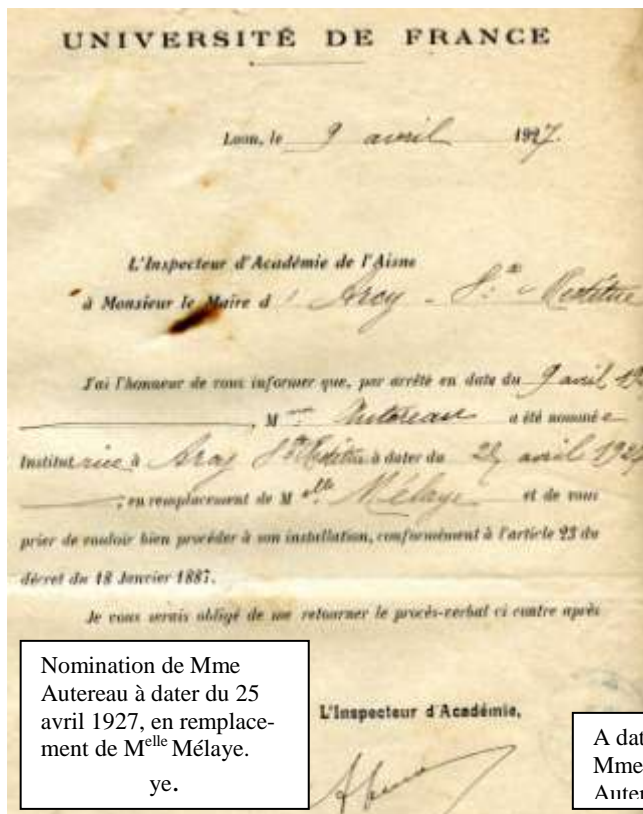 UNIVERSITÉ DE FRANCE
Laon, le 9 avril 1927.
L'Inspecteur d'Académie de l'Aisne
à Monsieur le Maire d' Arcy - Ste Restitue
J'ai l'honneur de vous informer que, par arrêté en date du 9 avril 19
, Mme Autereau a été nommée
Institutrice à Arcy Ste Restitue à dater du 25 avril 1927
, en remplacement de Melle Mélaye et de vous
prier de vouloir bien procéder à son installation, conformément à l'article 23 du
décret du 18 Janvier 1887.
Je vous serais obligé de me retourner le procès-verbal ci contre après
L'Inspecteur d'Académie,
Nomination de Mme
Autereau à dater du 25
avril 1927, en remplace-
ment de Melle Mélaye.
ye.
A dat
Mme
Auter